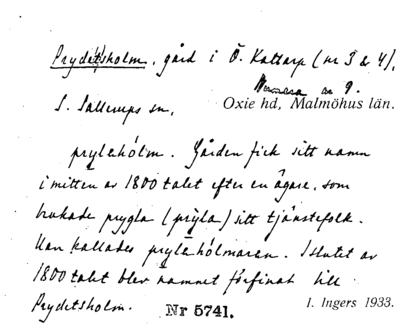 Prydetsholm, gård i Ö. Kattarp (nr 3 & 4),
Numera nr 9.
S. Sallerups sn,
Oxie hd, Malmöhus län.
prylahólm. Gården fick sitt namn
i mitten av 1800 talet efter en ägare, som
brukade prygla (prỳla) sitt tjänstefolk.
Han kallades prylahólmaren. I slutet av
1800 talet blev namnet förfinat till
Prydetsholm.
Nr 5741.
I. Ingers 1933.